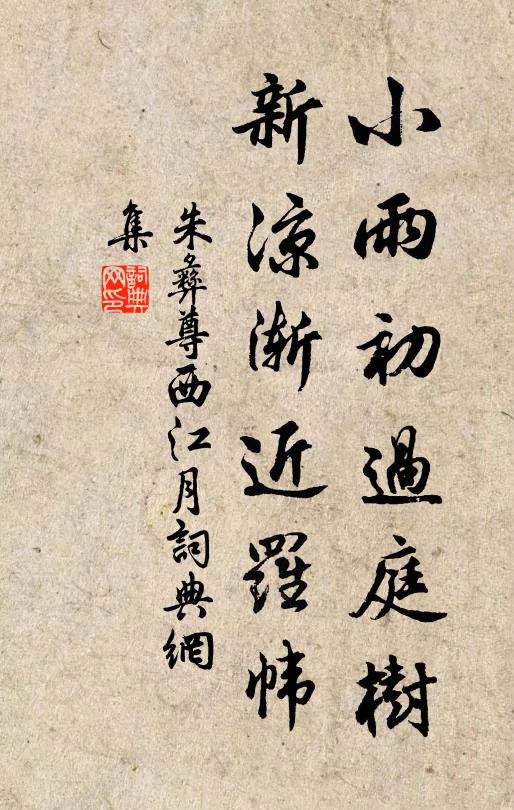 小雨初過庭樹
新涼漸近羅幃
朱彝尊西江月詞典網
集
詞典网印